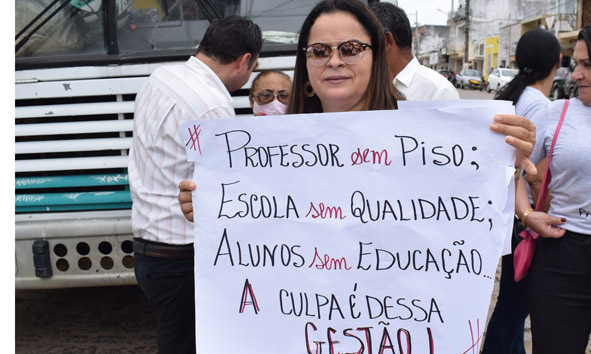 # PROFESSOR sem PISO;
ESCOLA sem QUALIDADE;
ALUNOS sem EDUCAÇÃO...
A CULPA É DESSA
GESTÃO! #